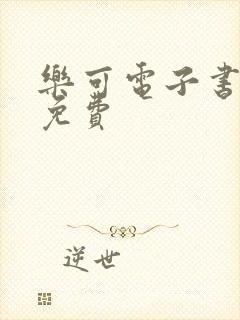 樂可電子書
免費
逆世